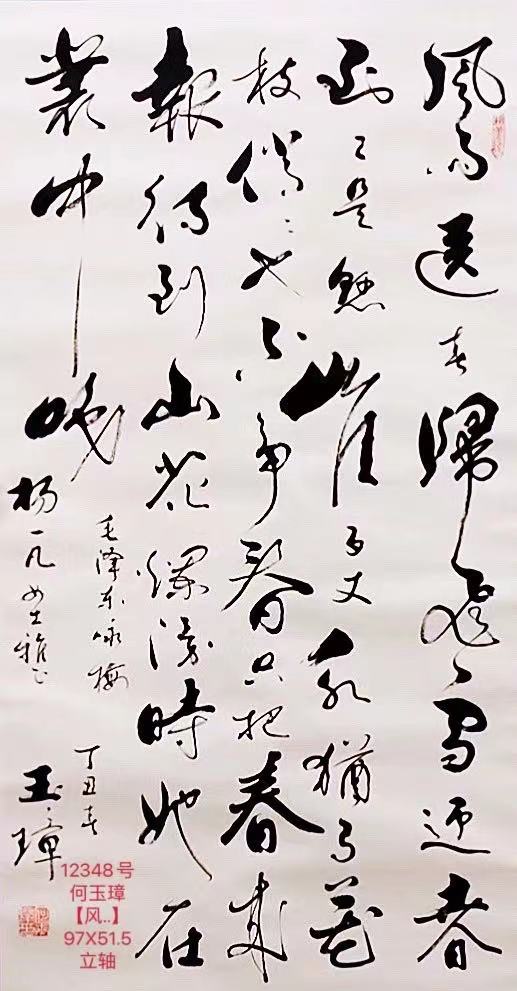 風雨送春歸飛雪迎春
到已是懸崖百丈冰猶有花
枝俏〻也不爭春只把春來
報待到山花爛漫時她在
叢中咲
毛澤东咏梅 丁丑春
杨一凡女士雅正 玉璋
12348号
何玉璋
【风..】
97X51.5
立轴